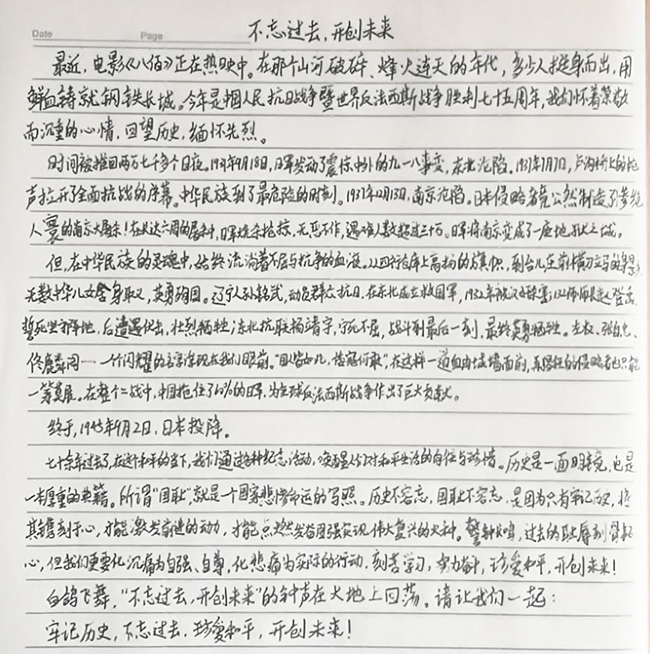 Date Page
不忘过去,开创未来
最近,电影《八佰》正在热映中。在那个山河破碎、烽火连天的年代,多少人挺身而出,用
鲜血铸就钢铁长城。今年是中国人民抗日战争暨世界反法西斯战争胜利七十五周年,我们怀着崇敬
而沉重的心情,回望历史,缅怀先烈。
时间被推回两万七千多个日夜。1931年9月18日,日军发动了震惊中外的九一八事变,东北沦陷。1937年7月7日,卢沟桥上的炮
声拉开了全面抗战的序幕。中华民族到了最危险的时刻。1937年12月13日,南京沦陷。日本侵略者竟公然制造了惨绝
人寰的南京大屠杀!在长达六周的屠杀中,日军烧杀抢掠,无恶不作,遇难人数超过三十万。日军将南京变成了一座地狱之城。
但,在中华民族的灵魂中,始终流淌着不屈与抗争的血液。从四行仓库上高扬的旗帜,到台儿庄前横刀立马的身影,
无数中华儿女舍身取义,英勇殉国。辽宁人孙铭武,动员群众抗日,在东北成立救国军,1932年被汉奸杀害;
誓死坚守阵地,后遭遇伏击,壮烈牺牲;东北抗联杨靖宇,宁死不屈,战斗到最后一刻,最终英勇牺牲。左权、张自忠、
佟麟阁……一个个闪耀的名字浮现在我们眼前。在这样一道血肉长城面前,再猖狂的侵略者也只能
一筹莫展。在整个二战中,中国拖住了60%的日军,为全球反法西斯战争作出了巨大贡献。
终于,1945年9月2日,日本投降。
七十余年过去了,在这个和平的当下,我们通过各种纪念活动,唤醒人们对和平生活的向往与珍惜。历史是一面明镜,也是
一本厚重的典籍。所谓“国耻”,就是一个国家悲惨命运的写照。历史不容忘,国耻不容忘,是因为只有牢记历史,将
其镌刻于心,才能激发前进的动力,才能点燃发奋图强实现伟大复兴的火种。警钟长鸣,过去的耻辱刻骨铭
心,但我们更要化沉痛为自强、自尊,化悲痛为实际的行动,刻苦学习,努力奋斗,珍爱和平,开创未来!
白鸽飞舞,“不忘过去,开创未来”的钟声在大地上回荡。请让我们一起:
牢记历史,不忘过去,珍爱和平,开创未来!